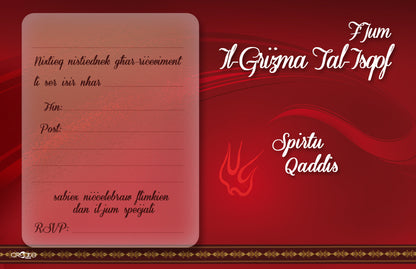 Nixtieq nistiednek għar-riċeviment
li ser isir nhar
Ħin:
Post:
sabiex niċċelebraw flimkien
dan il-jum speċjali
RSVP:
F'Jum
Il-Griżma Tal-Isqof
Spirtu
Qaddis